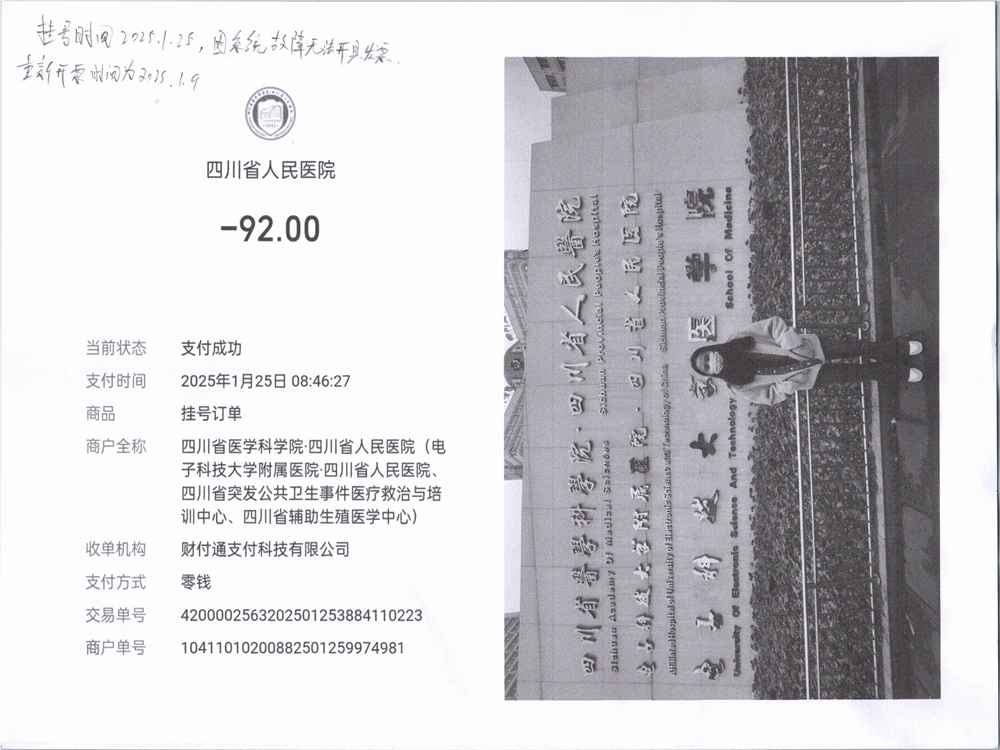 挂号时间2025.1.25，因系统故障无法开具发票.
重新开票时间为2025.1.9
四川省人民医院
-92.00
当前状态 支付成功
支付时间 2025年1月25日 08:46:27
商品 挂号订单
商户全称 四川省医学科学院·四川省人民医院（电
子科技大学附属医院·四川省人民医院、
四川省突发公共卫生事件医疗救治与培
训中心、四川省辅助生殖医学中心）
收单机构 财付通支付科技有限公司
支付方式 零钱
交易单号 4200002563202501253884110223
商户单号 10411010200882501259974981
四川省醫學科學院·四川省人民醫院
Sichuan Academy Of Medical Sciences Sichuan Provincial People's Hospital
电子科技大学附属医院·四川省人民医院
Affiliated Hospital of University of Electronic Science and Technology of China Sichuan Provincial People's Hospital
電子科技大学医学院
University Of Electronic Science And Technology School Of Medicine